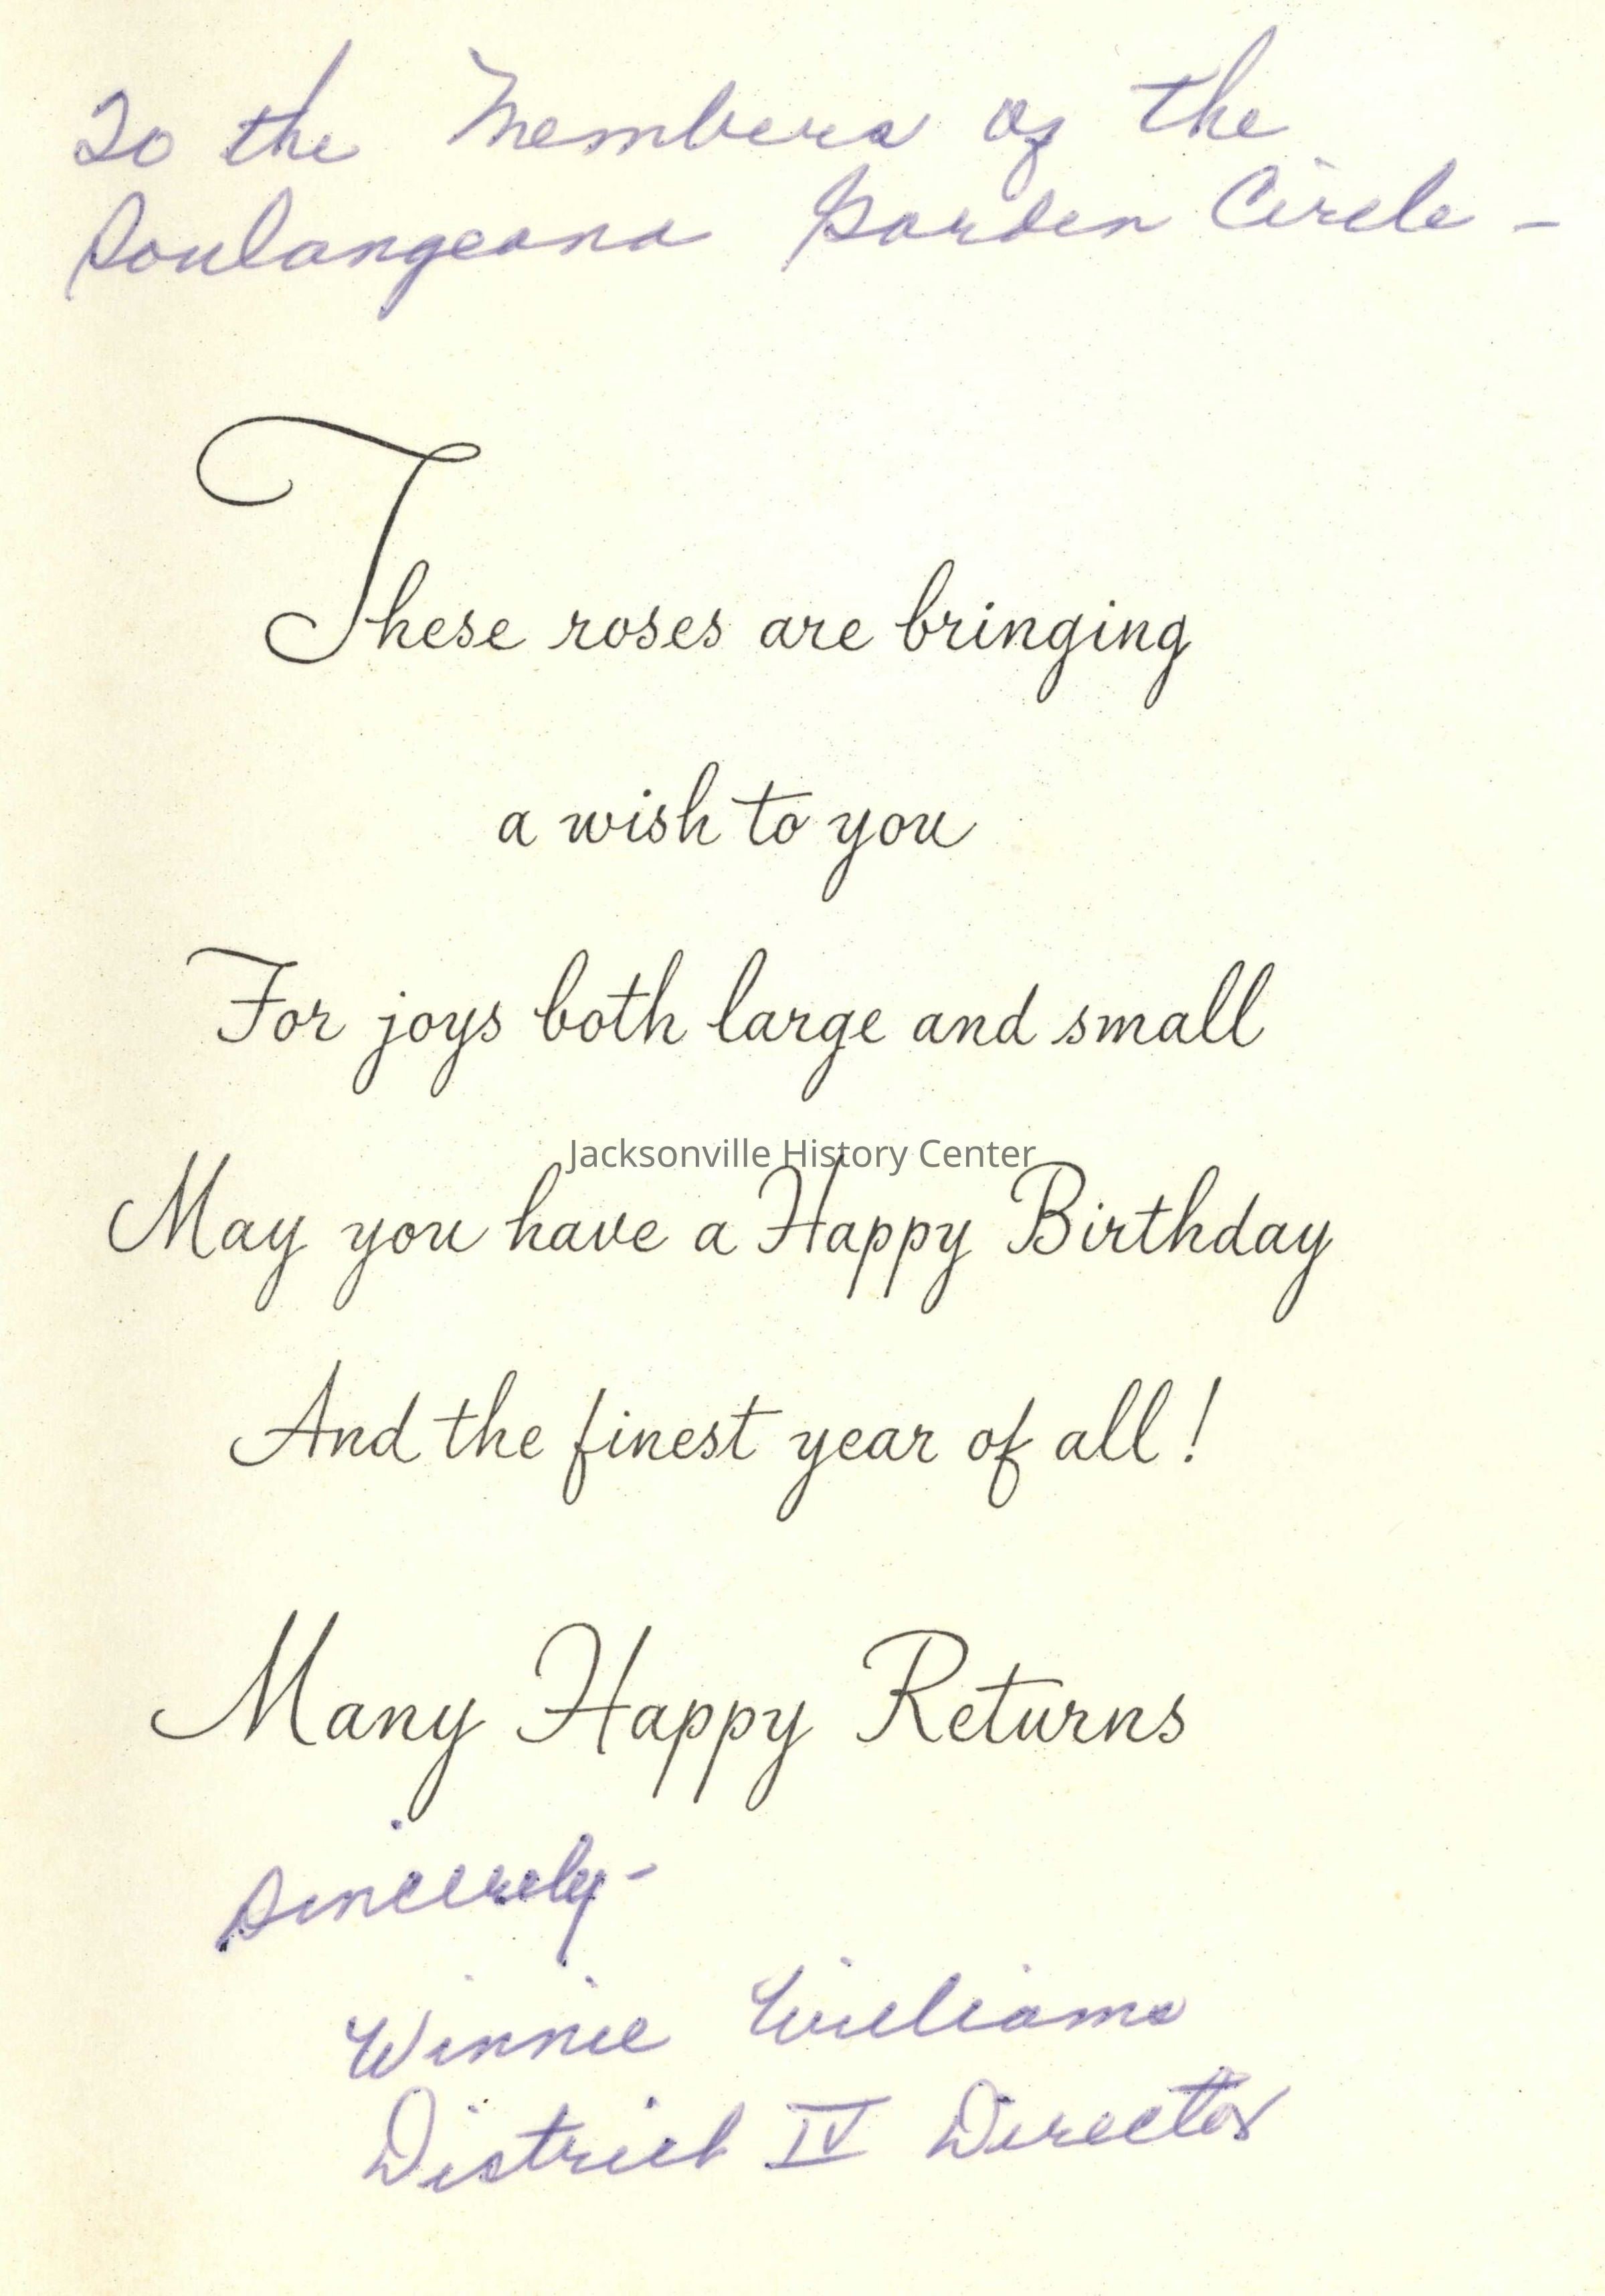 To the Members of the
Soulangeana Garden Circle -
These roses are bringing
a wish to you
For joys both large and small
Jacksonville History Center
May you have a Happy Birthday
And the finest year of all!
Many Happy Returns
Sincerely -
Winnie Williams
District IV Director